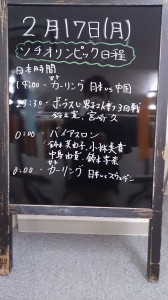 2月17日(月)
ソチオリンピック日程
日本時間
14:00- カーリング 日本 vs 中国
:30- ボブスレー男子2人乗り3日戦
鈴木寛、宮崎久
0:00- バイアスロン
鈴木芙由子、小林美貴
中島由貴、鈴木李奈
0:00- カーリング 日本 vs スウェーデン